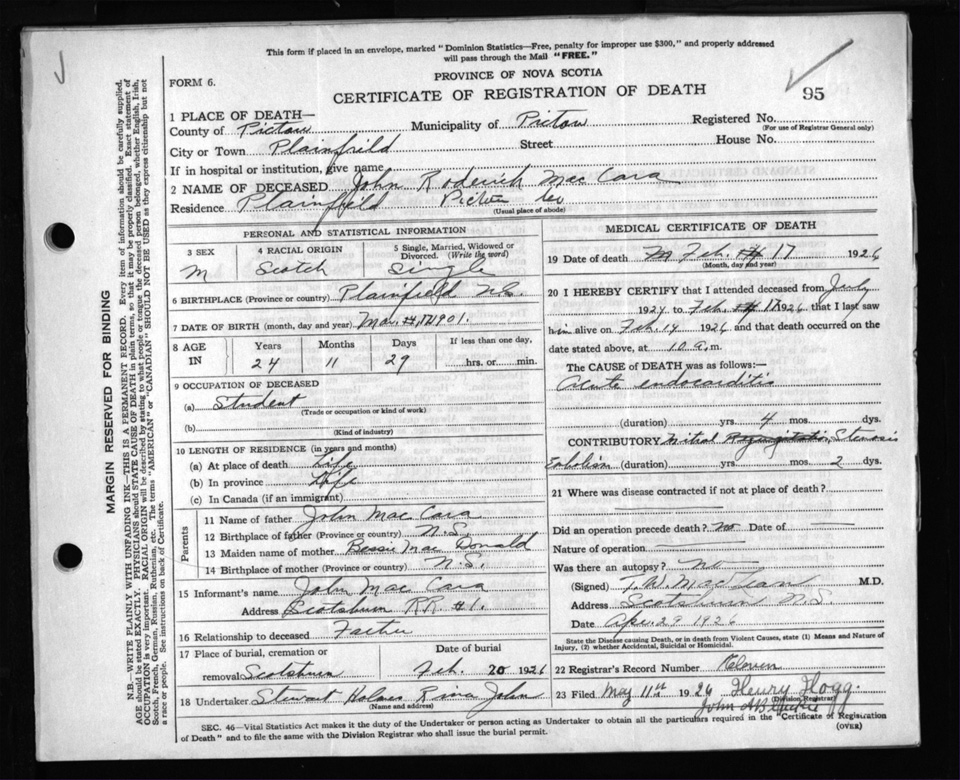 This form if placed in an envelope, marked "Dominion Statistics—Free, penalty for improper use $300," and properly addressed
will pass through the Mail "FREE."
FORM 6.
PROVINCE OF NOVA SCOTIA
CERTIFICATE OF REGISTRATION OF DEATH
95
1 PLACE OF DEATH—
County of Pictou Municipality of Pictou Registered No.
(For use of Registrar General only)
City or Town Plainfield Street House No.
If in hospital or institution, give name
2 NAME OF DECEASED John Roderick Mac Cara
Residence Plainfield Pictou Co
(Usual place of abode)
PERSONAL AND STATISTICAL INFORMATION
3 SEX 4 RACIAL ORIGIN 5 Single, Married, Widowed or Divorced. (Write the word)
M Scotch Single
6 BIRTHPLACE (Province or country) Plainfield N.S.
7 DATE OF BIRTH (month, day and year) Mar. 1901.
8 AGE IN Years Months Days If less than one day,
24 11 29 hrs. or min.
9 OCCUPATION OF DECEASED
(a) Student
(Trade or occupation or kind of work)
(b)
(Kind of industry)
10 LENGTH OF RESIDENCE (in years and months)
(a) At place of death Life
(b) In province Life
(c) In Canada (if an immigrant)
Parents
11 Name of father John Mac Cara
12 Birthplace of father (Province or country) N.S.
13 Maiden name of mother Bessie Mac Donald
14 Birthplace of mother (Province or country) N.S.
15 Informant's name John Mac Cara
Address Scotsburn R.R. #1.
16 Relationship to deceased Father
17 Place of burial, cremation or
removal Scotsburn Feb. 20 1926
18 Undertaker Stewart Holmes River John
(Name and address)
MEDICAL CERTIFICATE OF DEATH
19 Date of death Feb. 17 1926
(Month, day and year)
20 I HEREBY CERTIFY that I attended deceased from July
1924 to Feb. 17 1926 that I last saw
him alive on Feb. 14 1926 and that death occurred on the
date stated above, at 10 a.m.
The CAUSE of DEATH was as follows:—
Acute endocarditis
(duration) yrs. 4 mos. dys.
CONTRIBUTORY Mitral Regurgitation Stenosis
Embolism (duration) yrs. mos. 2 dys.
21 Where was disease contracted if not at place of death?
Did an operation precede death? no Date of
Nature of operation
Was there an autopsy? No
(Signed) T. W. MacLean M.D.
Address Scotsburn N.S
Date Apr. 29 1926
State the Disease causing Death, or in death from Violent Causes, state (1) Means and Nature of
Injury, (2) whether Accidental, Suicidal or Homicidal.
22 Registrar's Record Number Eleven
23 Filed May 11th 1926 Henry Hogg.
(Division Registrar)
John
SEC. 46—Vital Statistics Act makes it the duty of the Undertaker or person acting as Undertaker to obtain all the particulars required in the "Certificate of Registration
of Death" and to file the same with the Division Registrar who shall issue the burial permit.
(OVER)
MARGIN RESERVED FOR BINDING
N.B.—WRITE PLAINLY WITH UNFADING INK—THIS IS A PERMANENT RECORD. Every item of information should be carefully supplied.
AGE should be stated EXACTLY. PHYSICIANS should STATE CAUSE OF DEATH in plain terms, so that it may be properly classified. Exact statement of
OCCUPATION is very important. RACIAL ORIGIN will be described by stating to what people or tongue the deceased person belonged, whether English, Irish,
Scotch, French, German, Russian, Ruthenian, etc. The terms "AMERICAN" or "CANADIAN" SHOULD NOT BE USED as they express citizenship but not
a race or people. See instructions on back of Certificate.